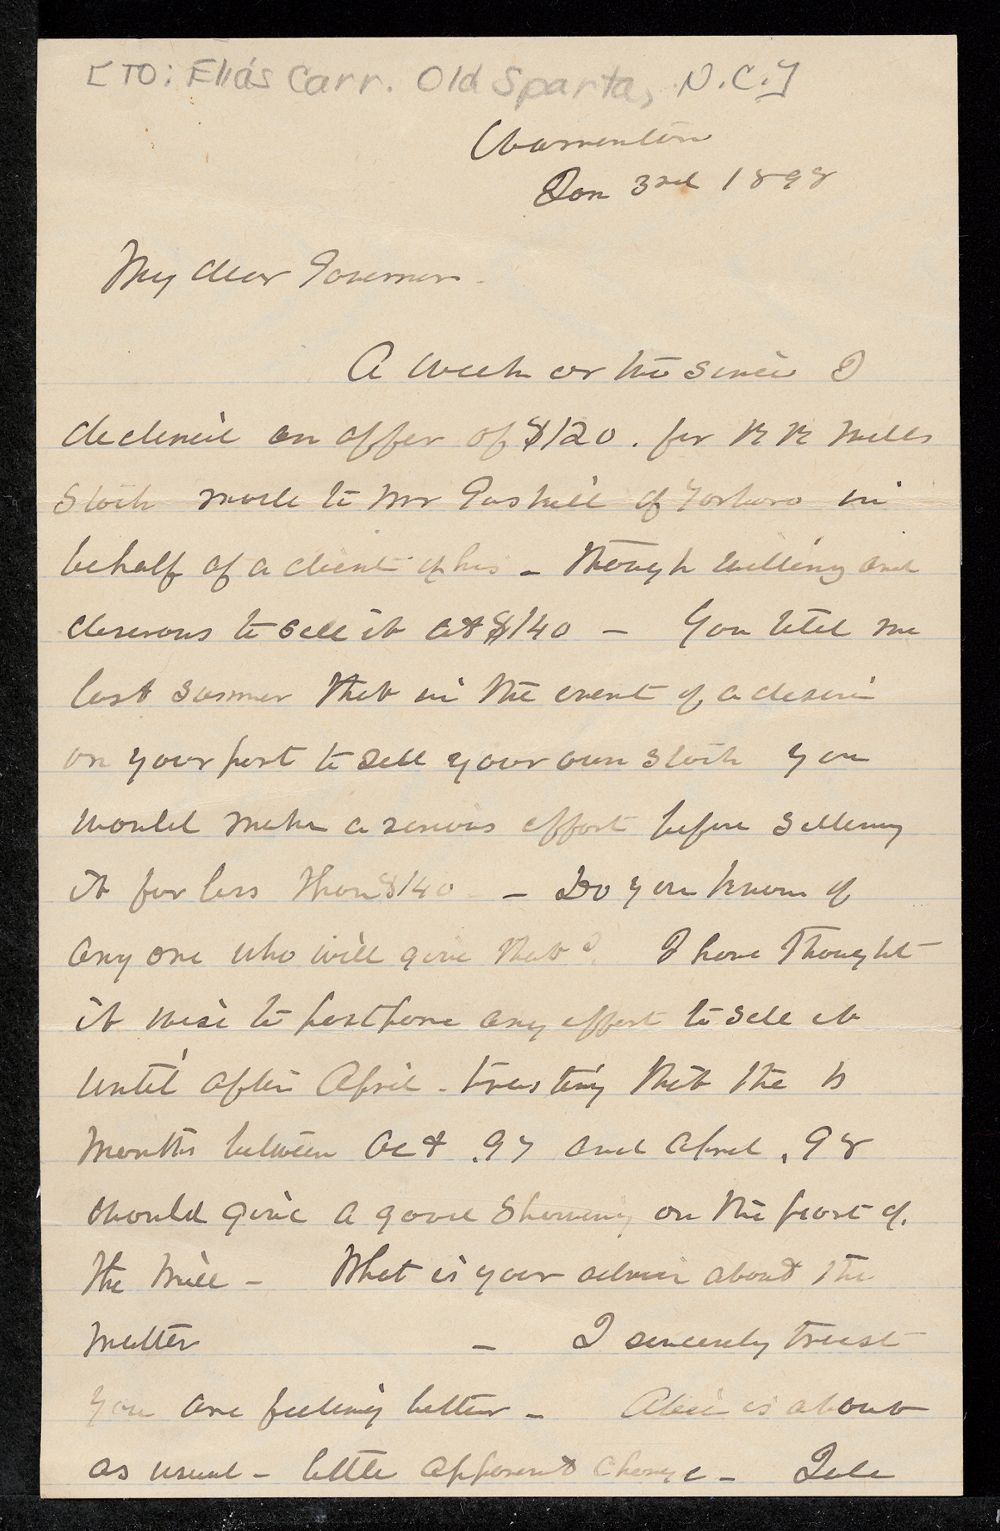 [TO: Elias Carr. Old Sparta, N.C.]
Warrenton
Jan 3rd 1898
My dear Governor.
A week or two since I
declined an offer of $120. for R R Mills
Stock made to Mr Gaskill of Tarboro in
behalf of a client of his - though willing and
desirous to sell it at $140 - You told me
last summer that in the event of a desire
on your part to sell your own stock you
would make a serious effort before selling
it for less than $140 - Do you know of
any one who will give that? I have thought
it wise to postpone any effort to sell it
until after April - trusting that the 6
months between Oct .97 and April .98
should give a good showing on the part of
the Mill - What is your advice about the
matter - I sincerely trust
you are feeling better - Alice is about
as usual - little apparent change -